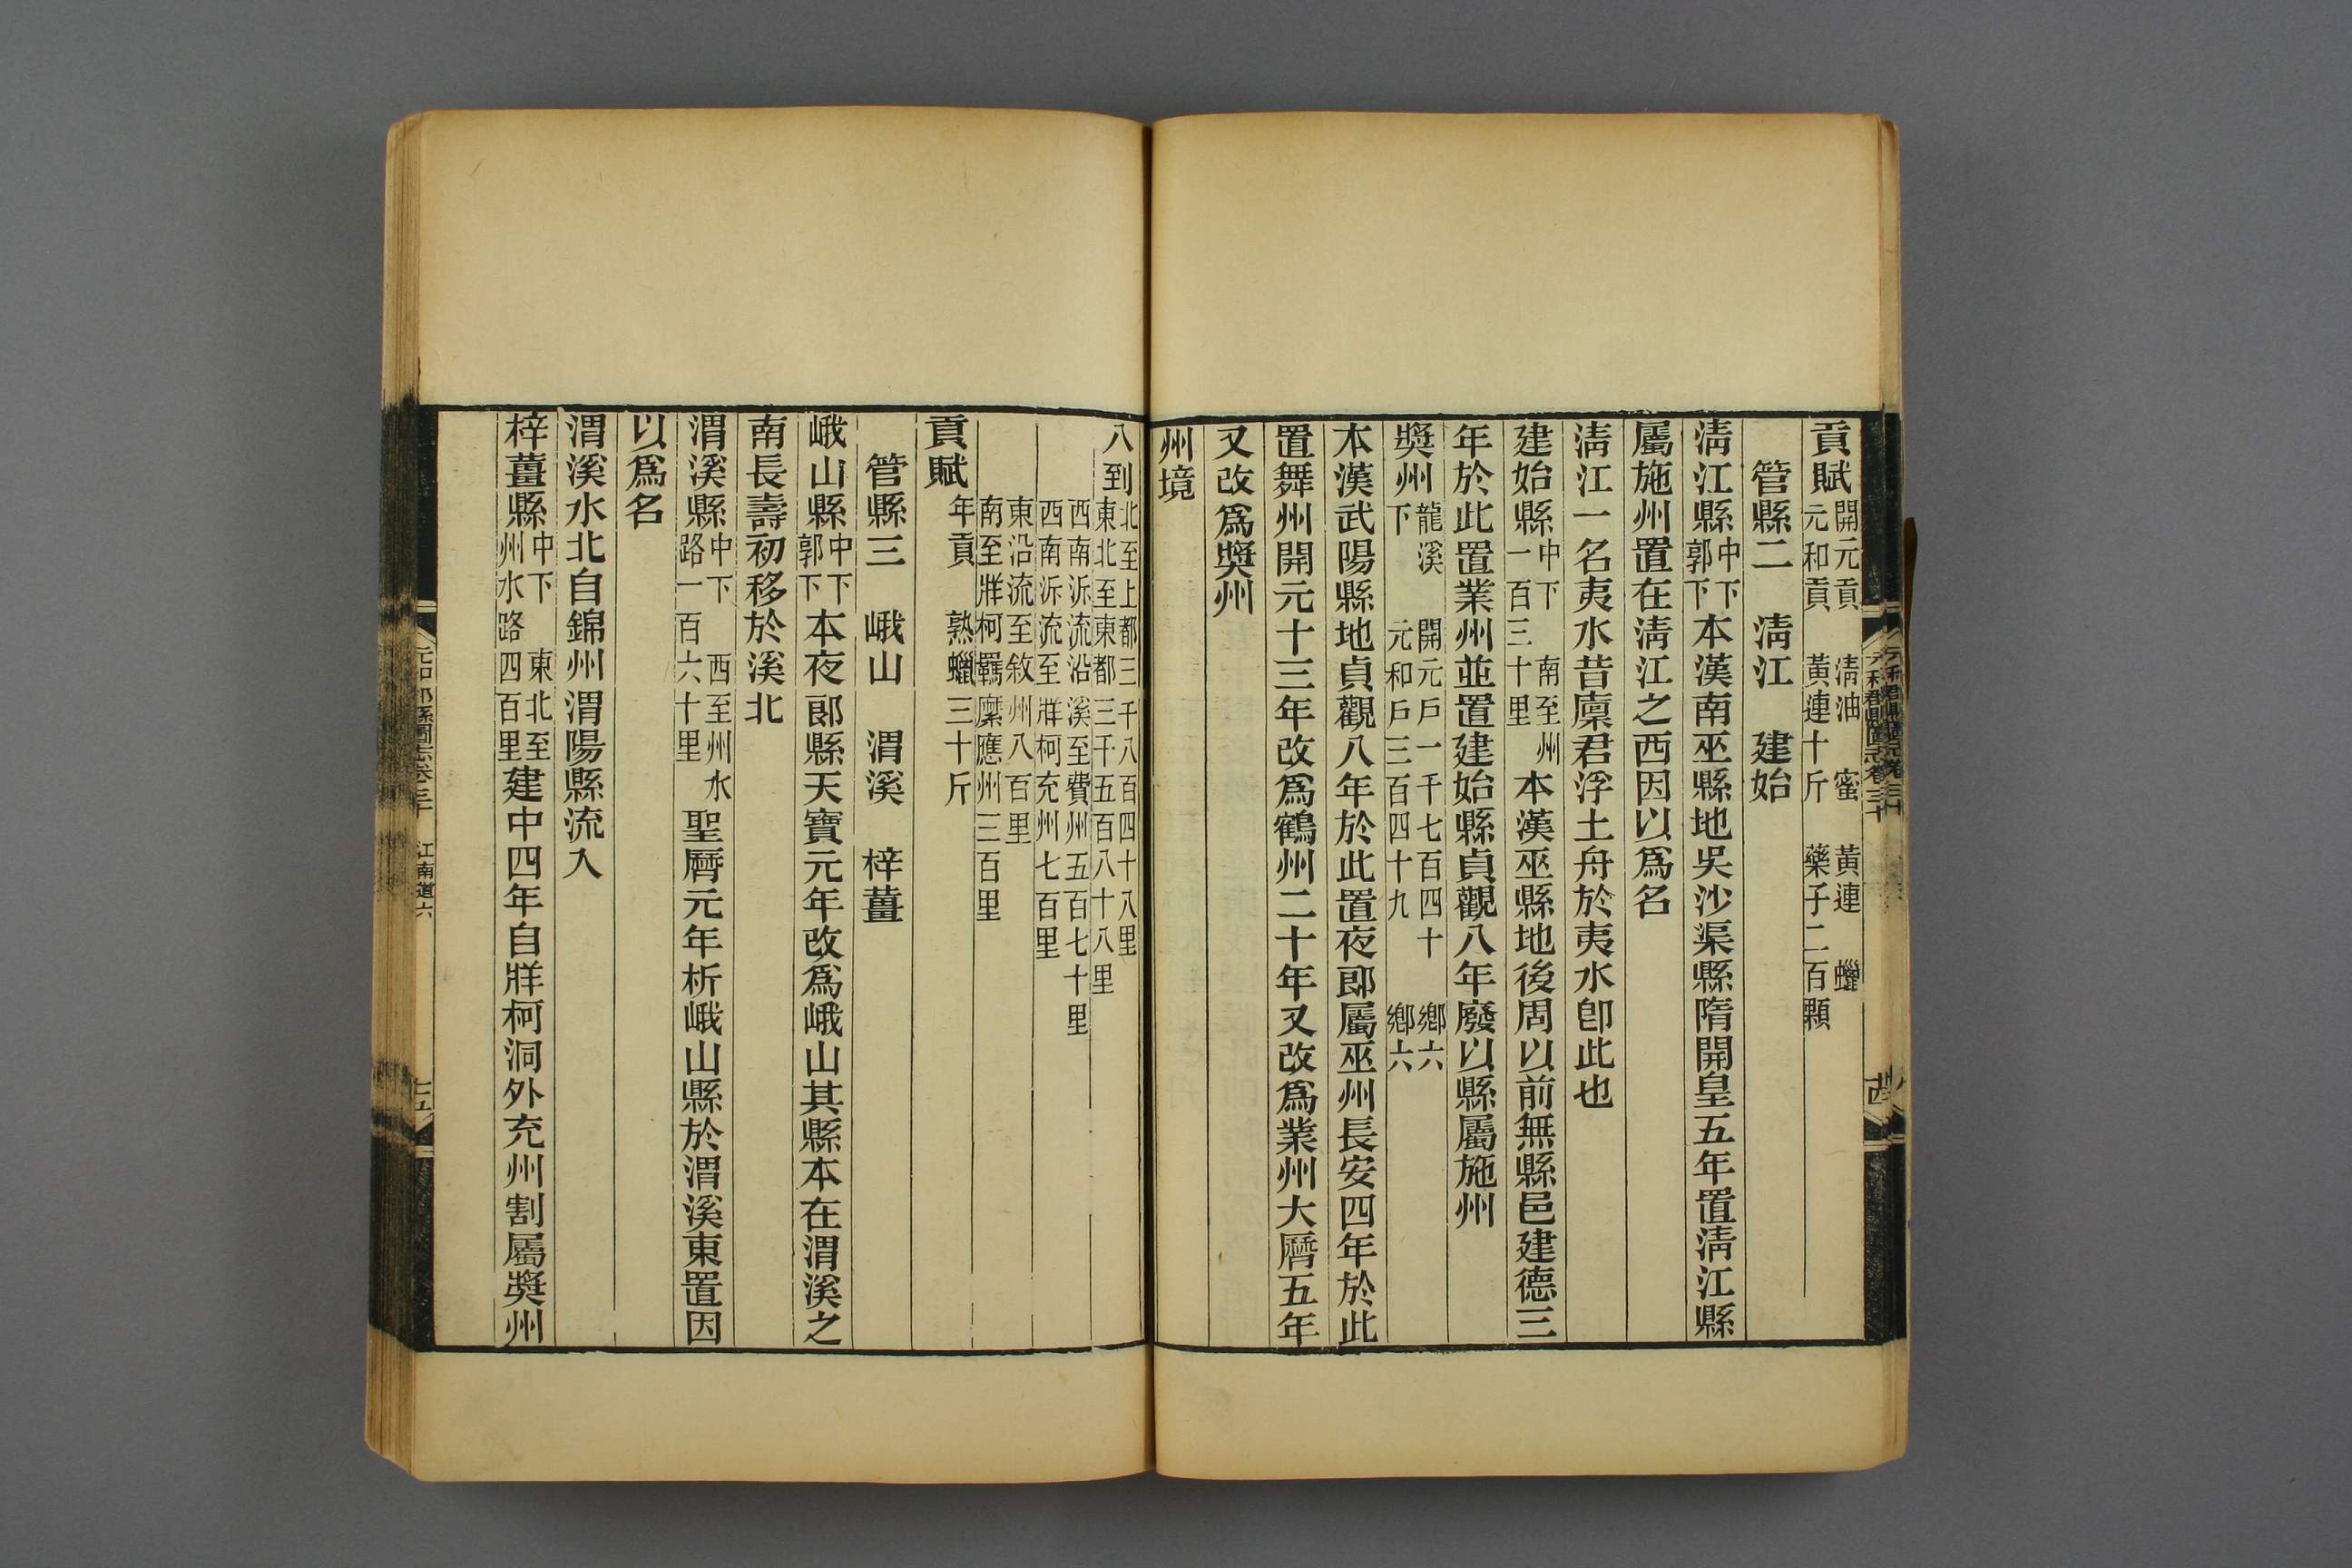 貢賦開元貢 清油 蜜 黃連 蠟
元和貢 黃連十斤 藥子二百顆
管縣二 清江 建始
清江縣中下
郭下本漢南巫縣地吳沙渠縣隋開皇五年置清江縣
屬施州置在清江之西因以爲名
清江一名夷水昔廩君浮土舟於夷水卽此也
建始縣中下 南至州
一百三十里本漢巫縣地後周以前無縣邑建德三
年於此置業州並置建始縣貞觀八年廢以縣屬施州
獎州龍溪 開元戶一千七百四十 鄕六
下 元和戶三百四十九 鄕六
本漢武陽縣地貞觀八年於此置夜郞屬巫州長安四年於此
置舞州開元十三年改爲鶴州二十年又改爲業州大曆五年
又改爲獎州
州境
八到北至上都三千八百四十八里
東北至東都三千五百八十八里
西南泝流沿溪至費州五百七十里
西南泝流至牂柯充州七百里
東沿流至敘州八百里
南至牂柯羈縻應州三百里
貢賦年貢 熟蠟三十斤
管縣三 峨山 渭溪 梓薑
峨山縣中下
郭下本夜郞縣天寶元年改爲峨山其縣本在渭溪之
南長壽初移於溪北
渭溪縣中下 西至州水
路一百六十里聖曆元年析峨山縣於渭溪東置因
以爲名
渭溪水北自錦州渭陽縣流入
梓薑縣中下 東北至
州水路四百里建中四年自牂柯洞外充州割屬獎州
元和郡縣圖志卷三十 江南道六